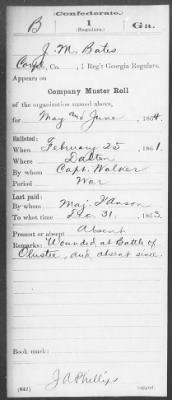 Confederate.
B 1 Ga.
(Regulars.)
J. M. Bates
Corpl, Co. , 1 Reg't Georgia Regulars.
Appears on
Company Muster Roll
of the organization named above,
for May and June, 1864.
Enlisted:
When February 25, 1861.
Where Dalton
By whom Capt. Walker
Period War
Last paid:
By whom Maj. I'Anson
To what time Dec. 31, 1863.
Present or absent Absent
Remarks: Wounded at Battle of
Olustee, and absent since.
Book mark:
J A Phillips
(642) Copyist.